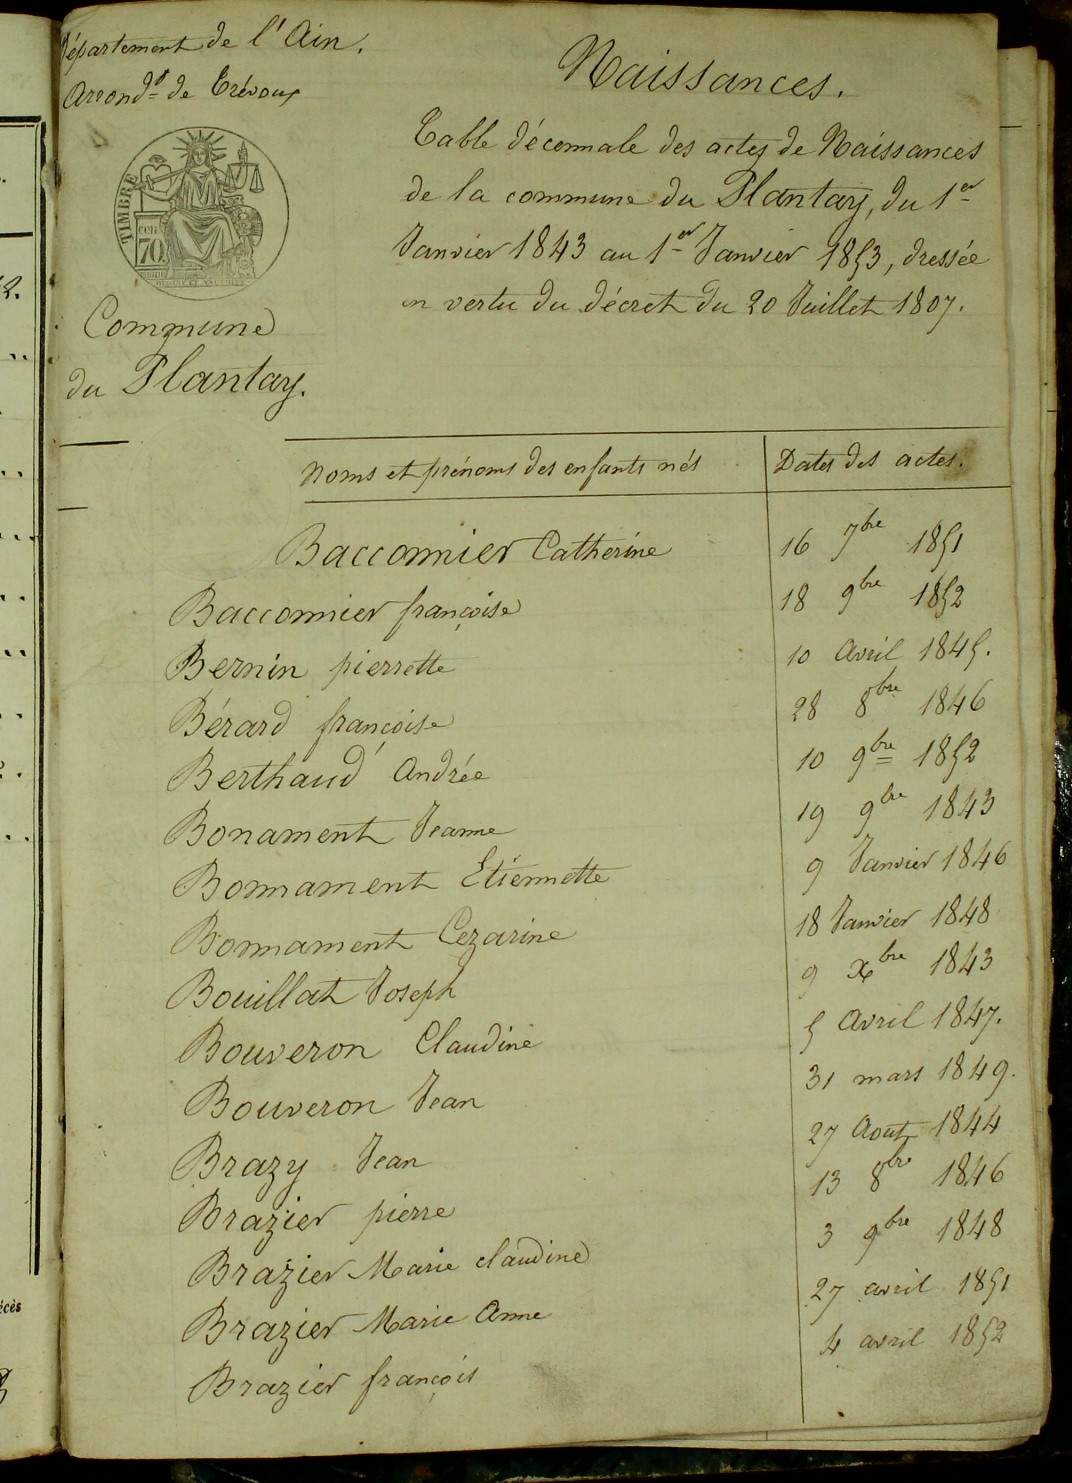 Département de l'Ain.
Arrond.t de Trévoux
TIMBRE
cen
70
Commune
du Plantay.
Naissances.
Table décennale des actes de Naissances
de la commune du Plantay, du 1er
Janvier 1843 au 1er Janvier 1853, dressée
en vertu du décret du 20 Juillet 1807.
Noms et prénoms des enfants nés Dates des actes.
Bacconnier Catherine 16 7bre 1851
Bacconnier françoise 18 9bre 1852
Bernin pierrette 10 Avril 1845.
Bérard françoise 28 8bre 1846
Berthaud Andrée 10 9bre 1852
Bonament Jeanne 19 9bre 1843
Bonnament Etiennette 9 Janvier 1846
Bonnament Cezarine 18 Janvier 1848
Bouillat Joseph 9 Xbre 1843
Bouveron Claudine 5 Avril 1847.
Bouveron Jean 31 mars 1849.
Brazy Jean 27 Aout 1844
Brazier pierre 13 8bre 1846
Brazier Marie claudine 3 9bre 1848
Brazier Marie Anne 27 avril 1851
Brazier françois 4 avril 1852
écès